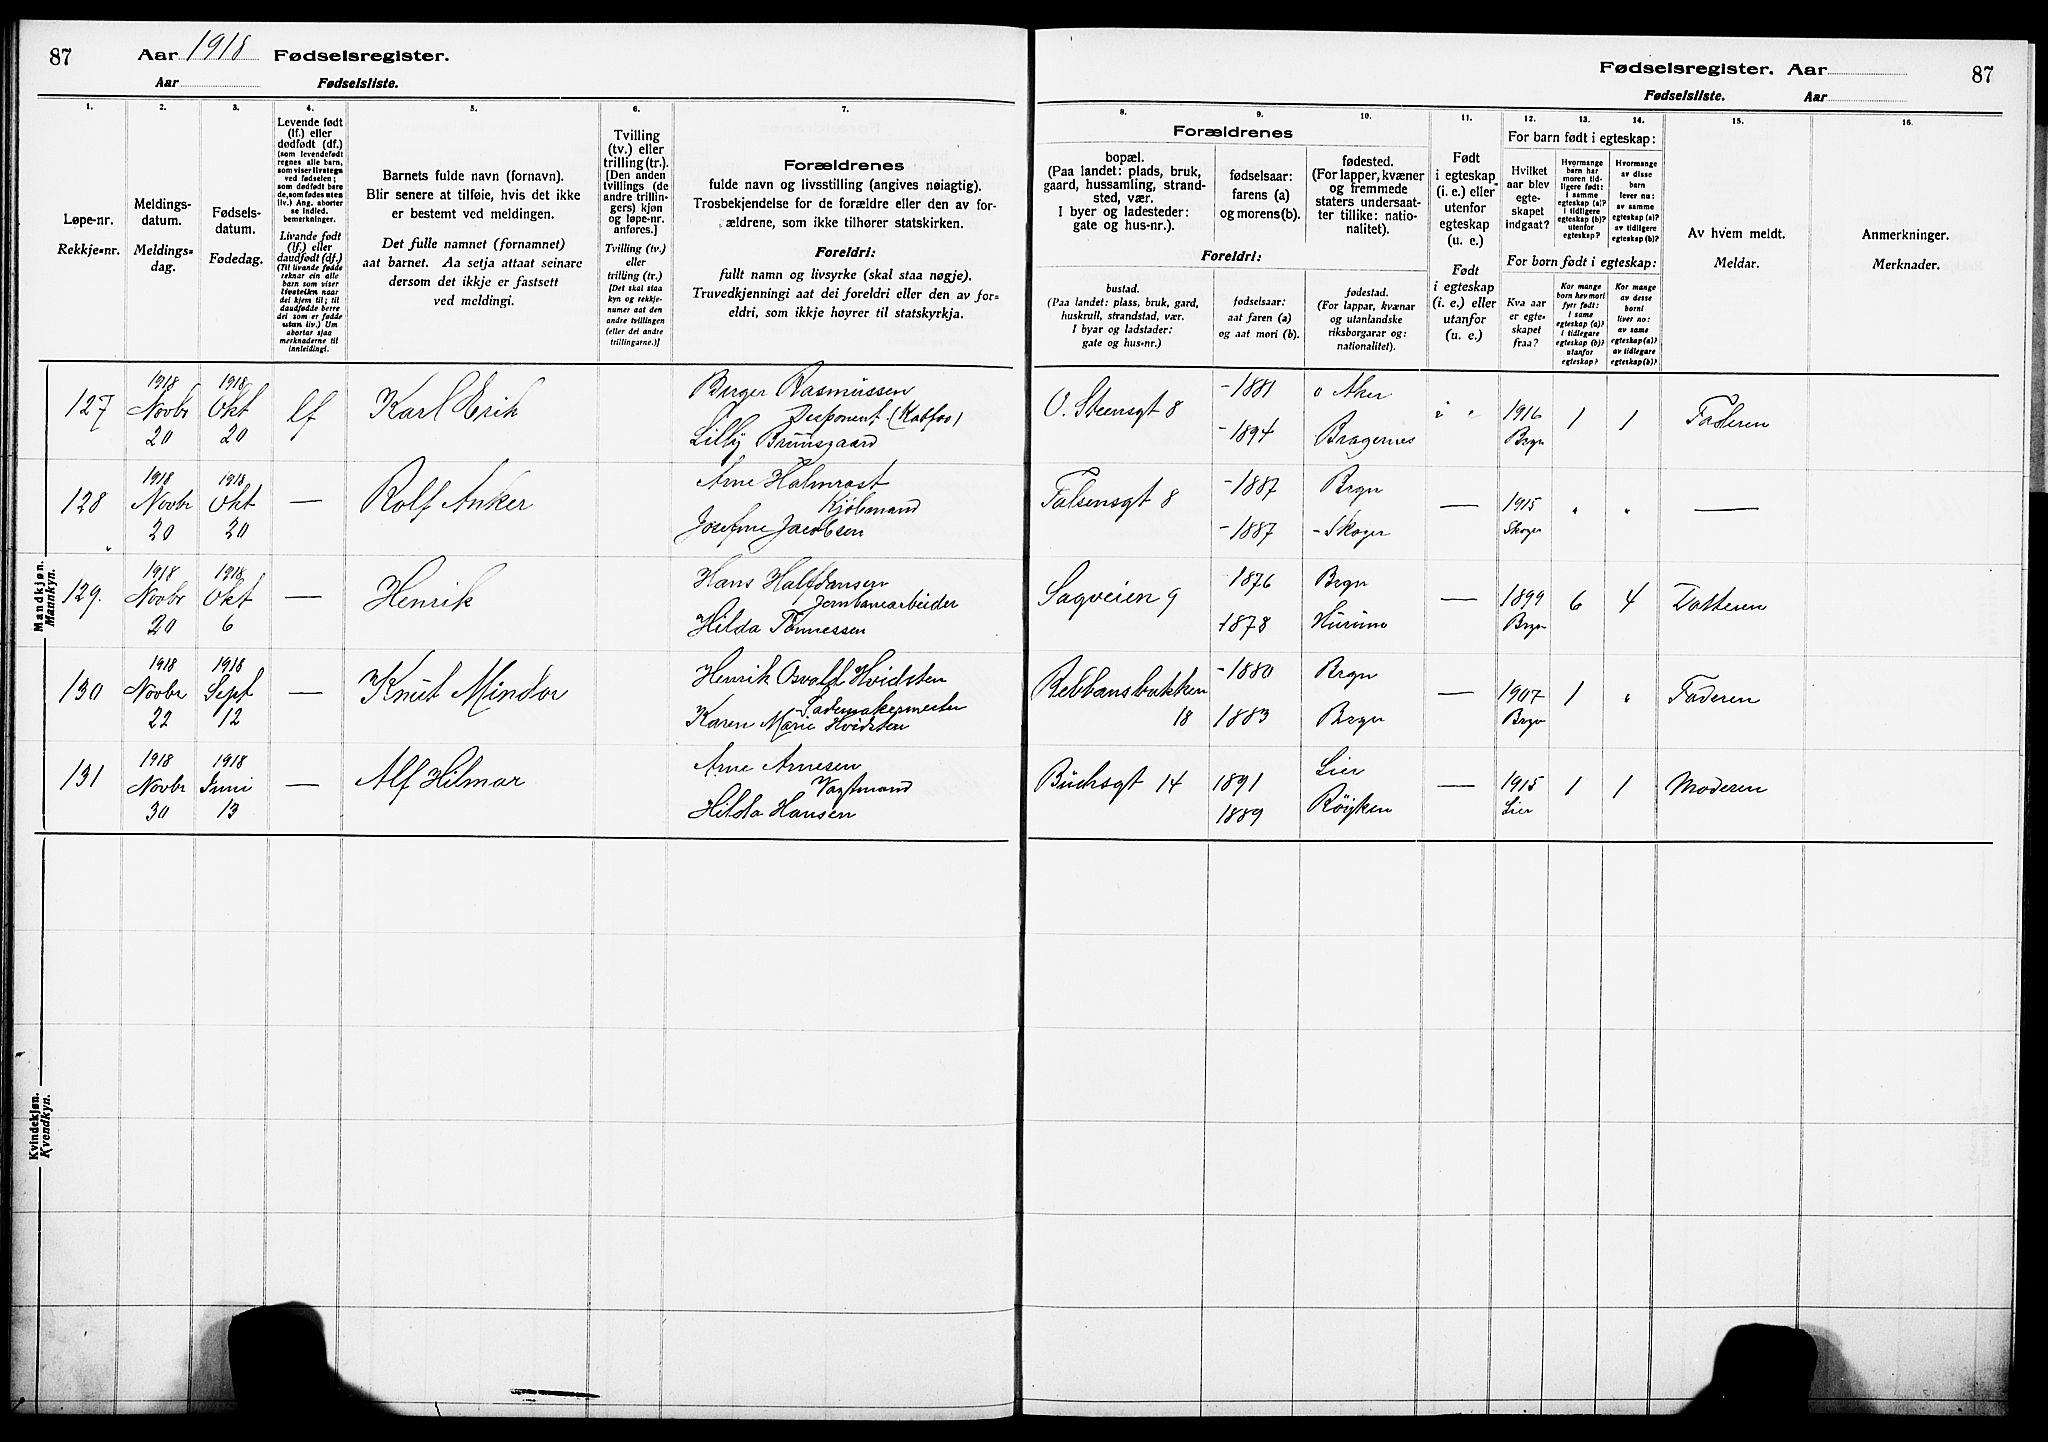 87 Aar 1918 Fødselsregister.
Aar Fødselsliste.
1. 2. 3. 4. 5. 6. 7.
Løpe-nr.
Rekkje-nr.
Meldings-
datum.
Meldings-
dag.
Fødsels-
datum.
Fødedag.
Levende født
(lf.) eller
dødfødt (df.)
(som levendefødt
regnes alle barn,
som viser livstegn
ved fødselen;
som dødfødt bare
de, som fødes uten
liv.) Ang. aborter
se indled.
bemerkninger.
Livande født
(lf.) eller
daudfødt (df.)
(Til livande fødde
reknar ein alle
barn som viser
livsteikn naar
dei kjem til; til
daudfødde berre
dei som er fødde
utan liv.) Um
abortar sjaa
merknaderne til
innleidingi.
Barnets fulde navn (fornavn).
Blir senere at tilføie, hvis det ikke
er bestemt ved meldingen.
Det fulle namnet (fornamnet)
aat barnet. Aa setja attaat seinare
dersom det ikkje er fastsett
ved meldingi.
Tvilling
(tv.) eller
trilling (tr.).
[Den anden
tvillings (de
andre trillin-
gers) kjøn
og løpe-nr.
anføres.]
Tvilling (tv.)
eller
trilling (tr.)
[Det skal staa
kyn og rekkje-
numer aat den
andre tvillingen
(eller dei andre
trillingarne.)]
Forældrenes
fulde navn og livsstilling (angives nøiagtig).
Trosbekjendelse for de forældre eller den av for-
ældrene, som ikke tilhører statskirken.
Foreldri:
fullt namn og livsyrke (skal staa nøgje).
Truvedkjenningi aat dei foreldri eller den av for-
eldri, som ikkje høyrer til statskyrkja.
Mandkjøn.
Mannkyn.
127 1918 Novbr 20 1918 Okt 20 lf Karl Erik
Birger Rasmussen
Disponent (Katfos)
Lilly Bruusgaard
128 1918 Novbr 20 1918 Okt 20 — Rolf Anker
Arne Holmrast
Kjøbmand
Josefine Jacobsen
129. 1918 Novbr 20 1918 Okt 6 — Henrik
Hans Halfdansen
Jernbanearbeider
Hilda Tønnessen
130 1918 Novbr 22 1918 Sept 12 — Knut Mindor
Henrik Osvald Hvidsten
Sademakermester
Karen Marie Hvidsten
131 1918 Novbr 30 1918 Juni 13 — Alf Hilmar
Arne Arnesen
Vagtmand
Hilda Hansen
Kvindekjøn.
Kvendkyn.
Fødselsregister. Aar 87
Fødselsliste. Aar
8. 9. 10. 11. 12. 13. 14. 15. 16.
Forældrenes
bopæl.
(Paa landet: plads, bruk,
gaard, hussamling, strand-
sted, vær.
I byer og ladesteder:
gate og hus-nr.).
fødselsaar:
farens (a)
og morens(b).
fødested.
(For lapper, kvæner
og fremmede
staters undersaat-
ter tillike: natio-
nalitet).
Foreldri:
bustad.
(Paa landet: plass, bruk, gard,
huskrull, strandstad, vær.
I byar og ladstader:
gate og hus-nr.)
fødselsaar:
aat faren (a)
og aat mori (b).
fødestad.
(For lappar, kvænar
og utanlandske
riksborgarar og:
nationalitet).
Født
i egteskap
(i. e.) eller
utenfor
egteskap
(u. e.)
Født
i egteskap
(i. e.) eller
utanfor
(u. e.)
For barn født i egteskap:
Hvilket
aar blev
egte-
skapet
indgaat?
Hvormange
barn har
moren tid-
ligere født:
i samme
egteskap (a)?
i tidligere
egteskap (b)?
utenfor
egteskap?
Hvormange
av disse
barn
lever nu:
av samme
egteskap (a)?
av tidligere
egteskap (b)?
For born født i egteskap:
Kva aar
er egte-
skapet
fraa?
Kor mange
born hev mori
fyrr født:
i same
egteskap (a)?
i tidlegare
egteskap (b)?
utanfor
egteskap?
Kor mange
av desse
borni
liver no:
av same
egteskap (a)?
av tidlegare
egteskap (b)?
Av hvem meldt.
Meldar.
Anmerkninger.
Merknader.
O. Steensgt 8 -1881 Aker 1916 1 1 Faderen
-1894 Bragernes Brgn
Falsensgt 8 -1887 Brgn — 1915 " " —
-1887 - Skoger Skoger
Sagveien 9 -1876 Brgn — 1899 6 4 Datteren
1878 Hurum Brgn
Bebbansbakken -1880 Brgn — 1907 1 " Faderen
18 1883 Brgn Brgn
Buchsgt 14 1891 Lier — 1915 1 1 Moderen
1889 Röyken Lier